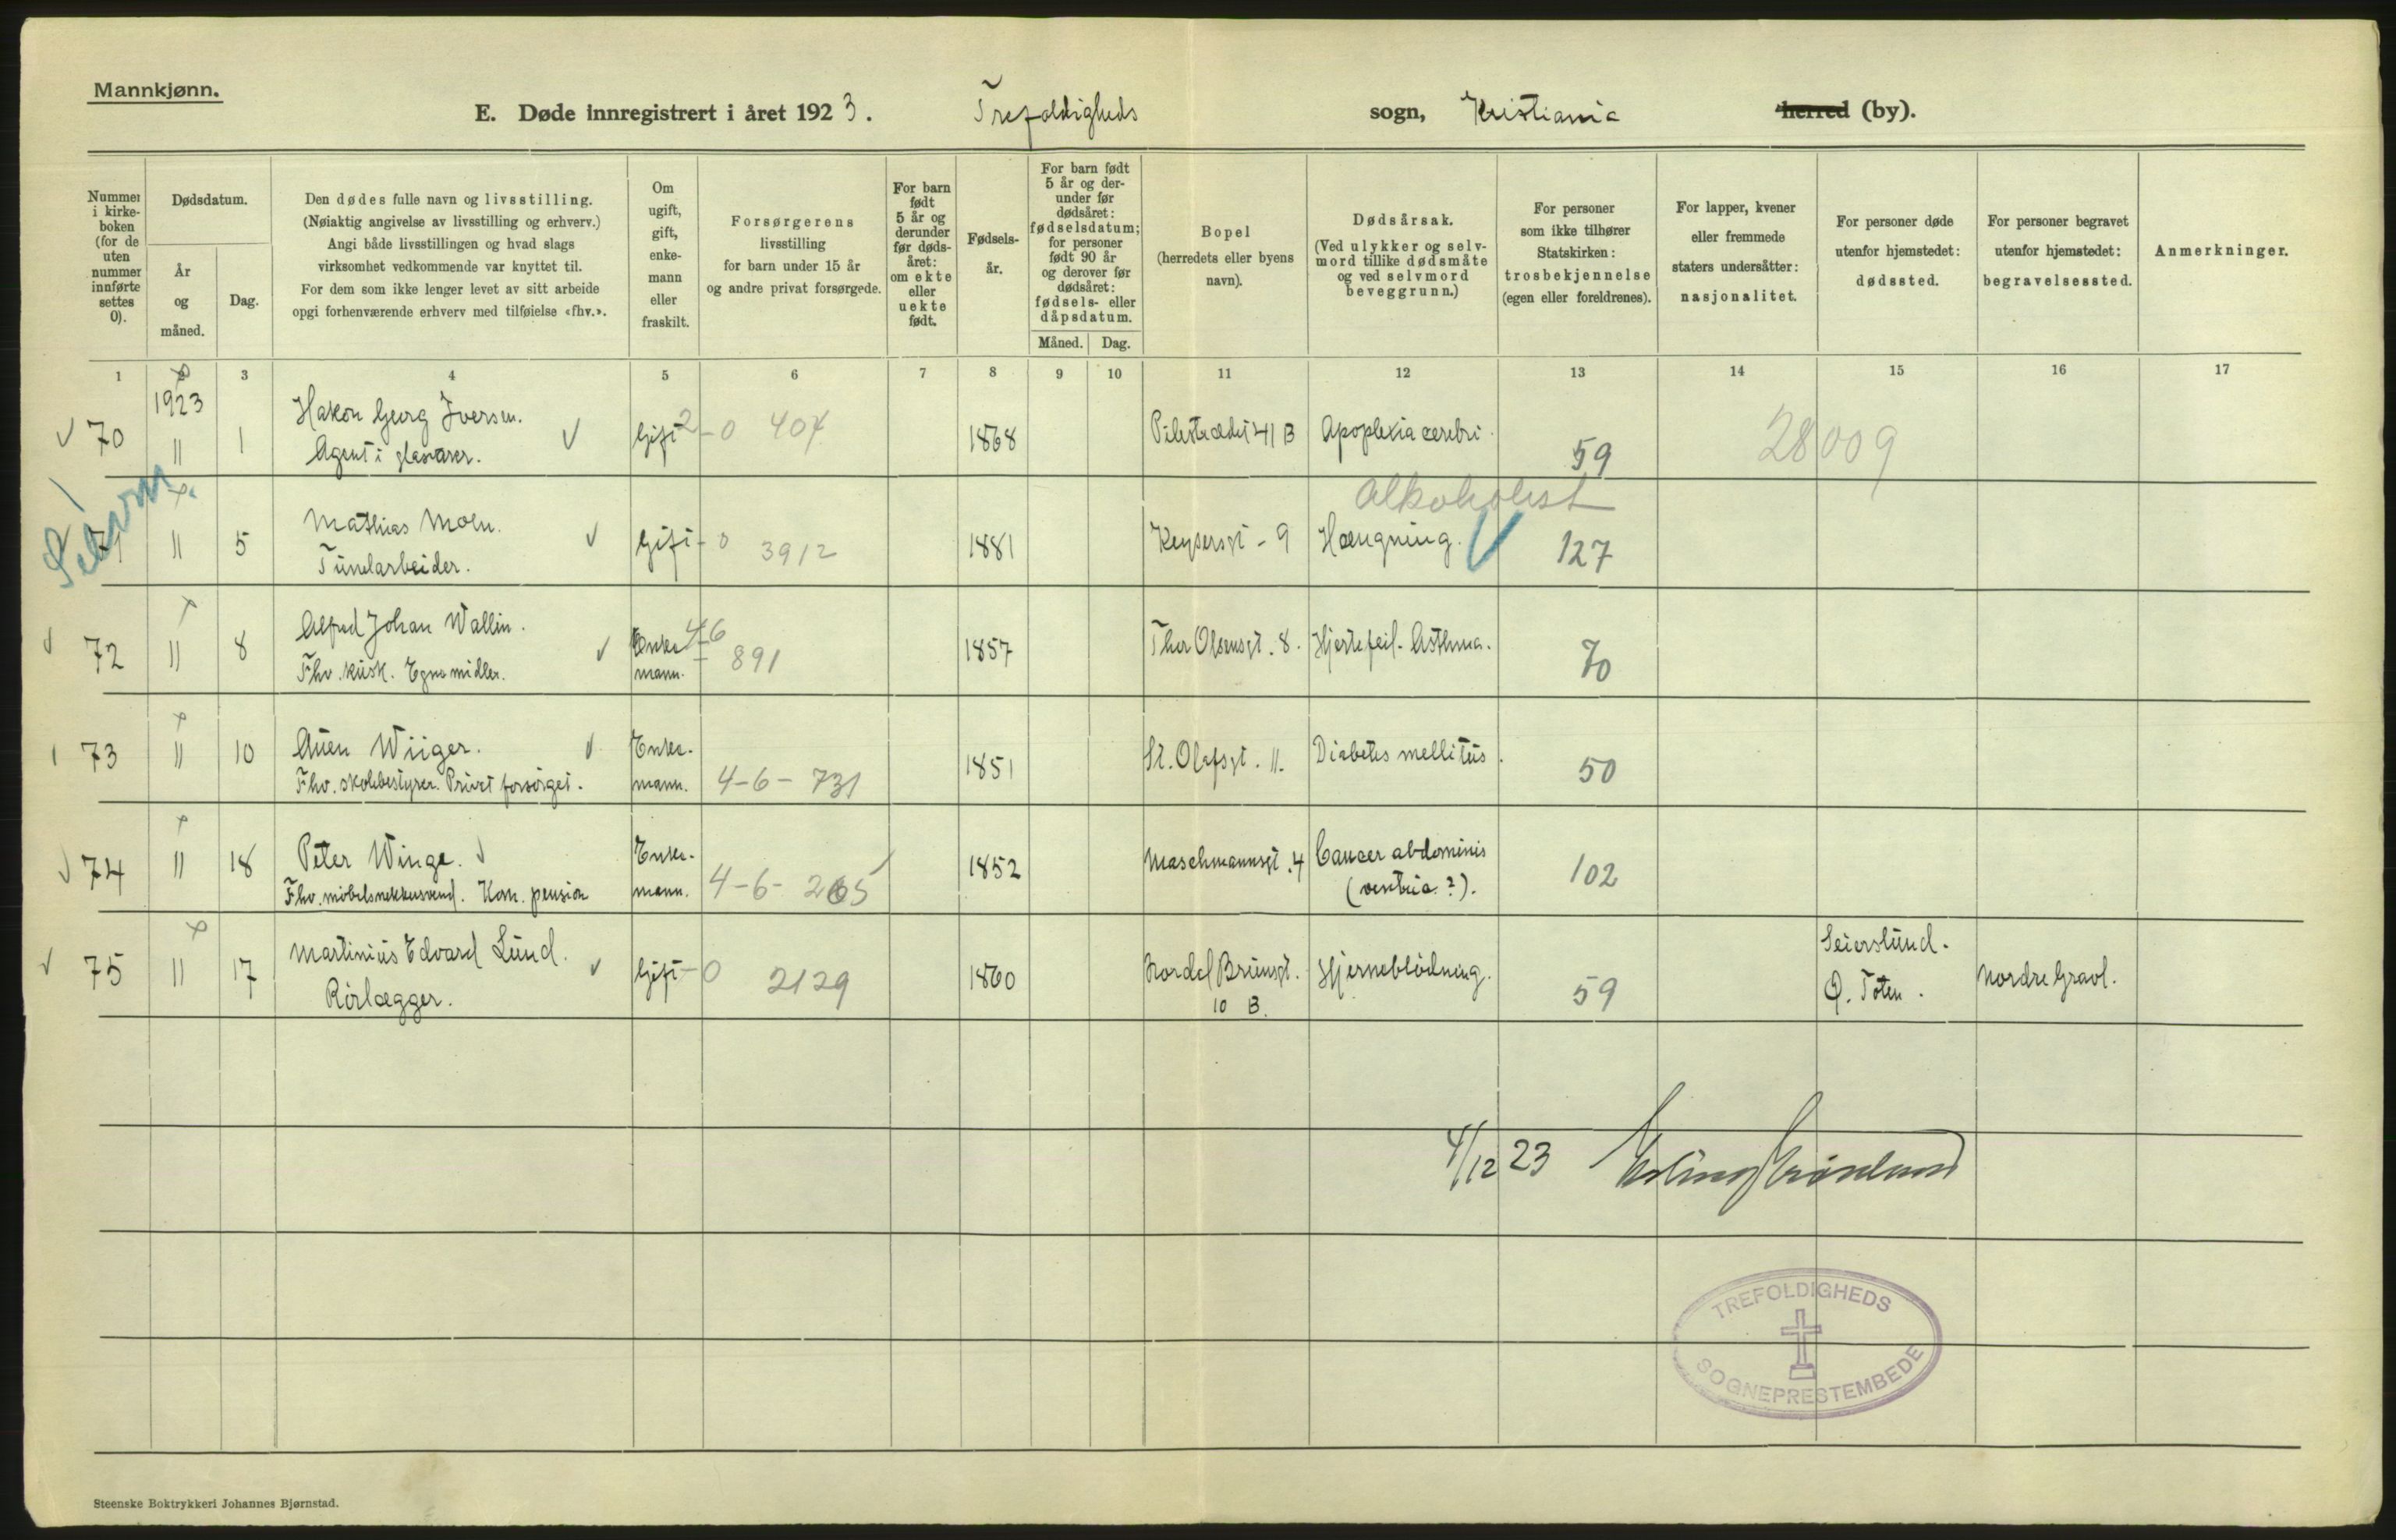 Mannkjønn.
E. Døde innregistrert i året 1923. Trefoldigheds sogn, Kristiania herred (by).
Nummer i kirkeboken (for de uten nummer innførte settes 0).
Dødsdatum.
År og måned.
Dag.
Den dødes fulle navn og livsstilling.
(Nøiaktig angivelse av livsstilling og erhverv.)
Angi både livsstillingen og hvad slags
virksomhet vedkommende var knyttet til.
For dem som ikke lenger levet av sitt arbeide
opgi forhenværende erhverv med tilføielse «fhv.».
Om ugift, gift, enkemann eller fraskilt.
Forsørgerens
livsstilling
for barn under 15 år
og andre privat forsørgede.
For barn født 5 år og derunder før dødsåret: om ekte eller uekte født.
Fødselsår.
For barn født 5 år og derunder før dødsåret: fødselsdatum; for personer født 90 år og derover før dødsåret: fødsels- eller dåpsdatum.
Måned. Dag.
Bopel
(herredets eller byens
navn).
Dødsårsak.
(Ved ulykker og selvmord tillike dødsmåte og ved selvmord beveggrunn.)
For personer
som ikke tilhører
Statskirken:
trosbekjennelse
(egen eller foreldrenes).
For lapper, kvener
eller fremmede
staters undersåtter:
nasjonalitet.
For personer døde
utenfor hjemstedet:
dødssted.
For personer begravet
utenfor hjemstedet:
begravelsessted.
Anmerkninger.
1 2 3 4 5 6 7 8 9 10 11 12 13 14 15 16 17
1923
70 11 1 Hakon Georg Iversen. Gift 2-0 407 1868 Pilestrædet 41 B Apoplexia cerebri. 59 28009
Agent i glasvarer.
Selvm
alkoholist
71 11 5 Mathias Moen. Gift - 0 3912 1881 Keysersgt - 9 Hængning. 127
Tunelarbeider.
72 11 8 Alfred Johan Wallin. Enkemann. 4-6 - 891 1857 Thor Olsensgt. 8. Hjertefeil. Asthma. 70
Fhv. kusk. Egne midler.
73 11 10 Auen Wiiger. Enkemann. 4-6-731 1851 St. Olafsgt. 11. Diabetes mellitus. 50
Fhv. skolebestyrer. Privat forsørget.
74 11 18 Peter Winge. Enkemann. 4-6-265 1852 Maschmannsgt. 4 Cancer abdominis 102
Fhv. møbelsnekkersvend. Kom. pension
75 11 17 Martinius Edvard Lund. Gift - 0 2129 1860 Nordal Brunsgt. 10 B. Hjerneblødning. 59 Seierslund. Ø. Toten. Nordre Gravl.
Rørlægger.
4/12 23 Erling Grønland
TREFOLDIGHEDS
SOGNEPRESTEMBEDE
Steenske Boktrykkeri Johannes Bjørnstad.